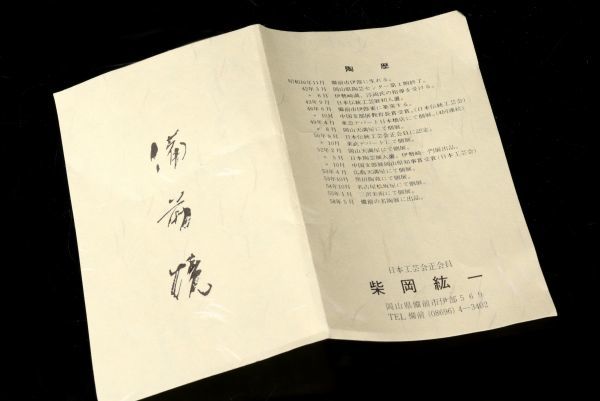 備前焼
陶歴
昭和16年11月 備前市伊部に生れる。
42年3月 岡山県陶芸センター第1期終了。
〃 6月 伊勢崎満、淳両氏の指導を受ける。
43年9月 日本伝統工芸展初入選。
48年6月 備前市伊部東に築窯する。
〃 10月 中国支部展教育長賞受賞。(日本伝統工芸会)
49年4月 東急デパート日本橋店にて個展。
〃 8月 岡山天満屋にて個展。
50年10月 日本伝統工芸会正会員に認定。
〃 10月 東急デパートにて個展。
52年2月 岡山天満屋にて個展。
〃 10月 中国支部展岡山県知事賞受賞(日本工芸会)
53年4月 広島天満屋にて個展。
にて個展。
54年10月 名古屋松坂屋にて個展。
にて個展。
58年5月 備前の名陶展に出品。
日本工芸会正会員
柴岡紘一
岡山県備前市伊部569
TEL 備前 (08696) 4-3402